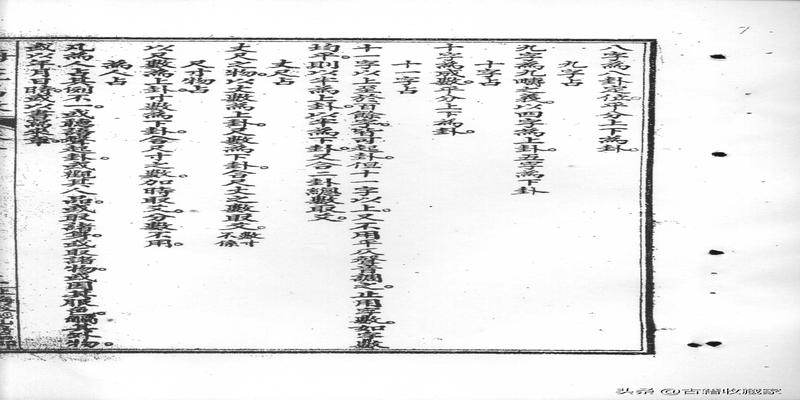 八字為八卦定位平分上下為卦。
九字占
九字為九疇之義以四字為上卦五字為下卦
十字占
十字為成數平分上下為卦。
十一字占
十一字以上至於百餘字皆可起卦但十一字以上又不用平仄聲音調之止用字數如字數
均平則以半為上卦以半為下卦又合二卦總數取爻。
丈尺占
丈尺之物以丈數為上卦尺數為下卦合尺丈之數取爻。數寸不係
尺寸物占
以尺數為上卦寸數為下卦合尺寸之數加時取爻分數不用
為人占
凡為人占其例不一或聽語聲起卦或觀其人品或取諸身或取諸物或因其服色觸其外物
或以年月日時或以書寫來意
头条 @古籍收藏家